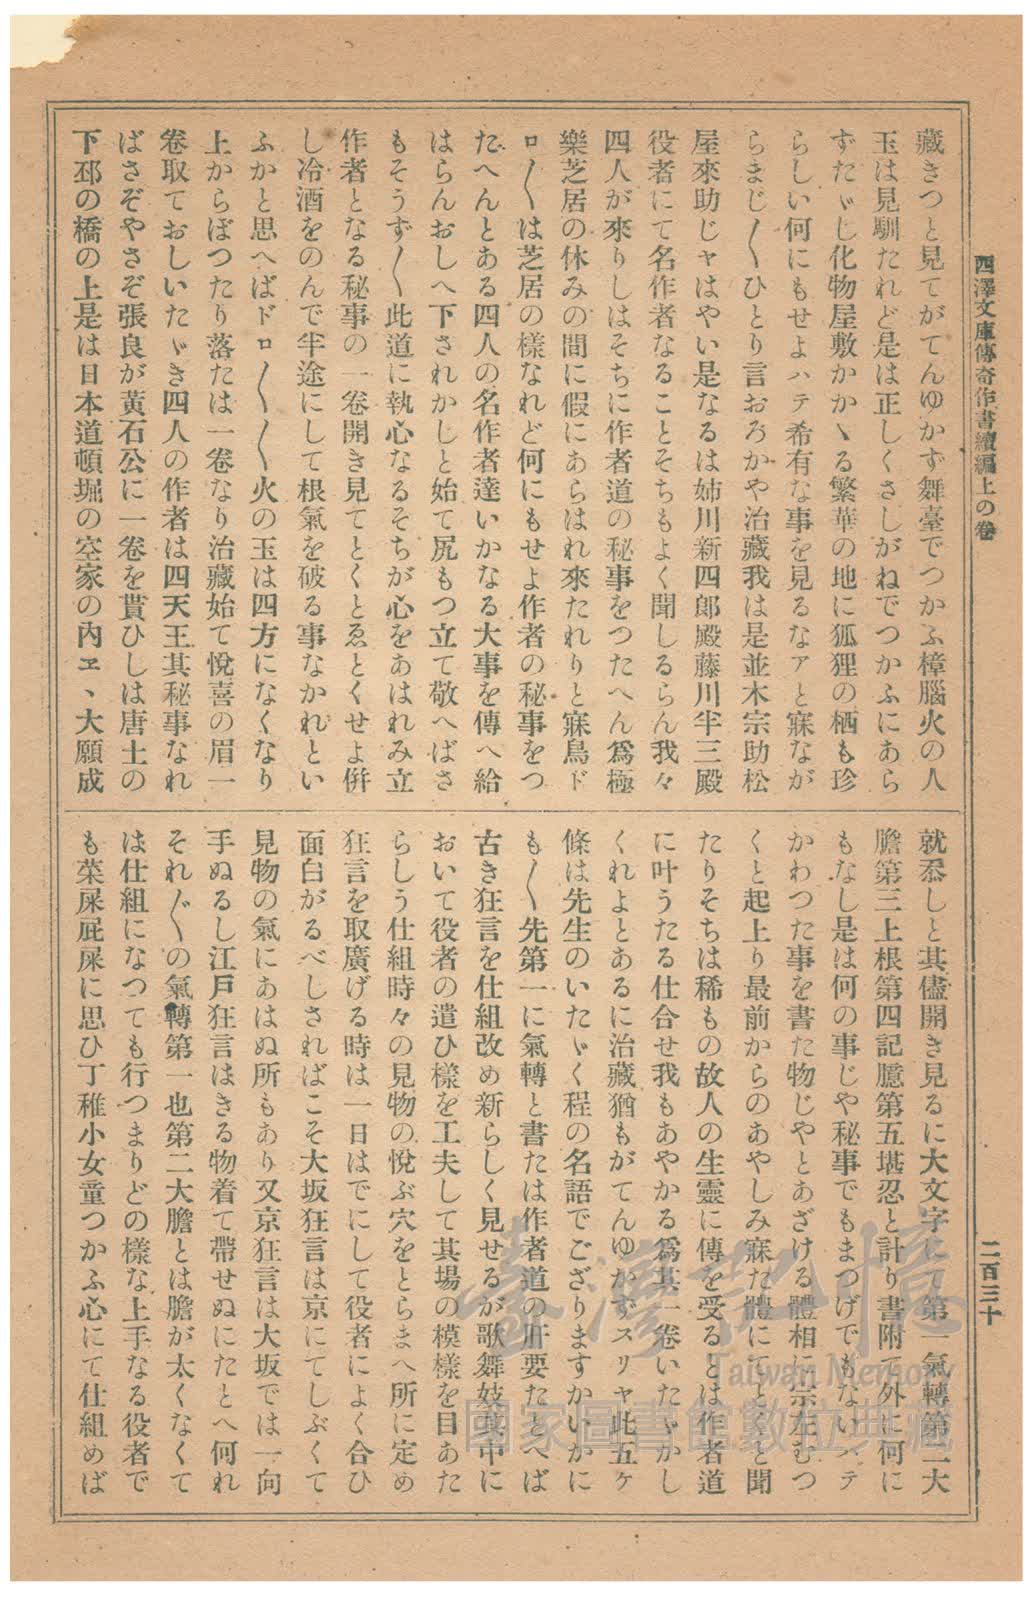 西澤文庫傳奇作書續編上の卷
二百三十
藏きつと見てがてんゆかず舞臺でつかふ樟腦火の人
玉は見馴たれど是は正しくさしがねでつかふにあら
ずたゞし化物屋敷かかゝる繁華の地に狐狸の栖も珍
らしい何にもせよハテ希有な事を見るなアと寐なが
らまじ〳〵ひとり言おろかや治藏我は是並木宗助松
屋來助じャはやい是なるは姉川新四郎殿藤川半三殿
役者にて名作者なることそちもよく聞しるらん我々
四人が來りしはそちに作者道の秘事をつたへん爲極
樂芝居の休みの間に假にあらはれ來たれりと寐鳥ド
ロ〳〵は芝居の樣なれど何にもせよ作者の秘事をつ
たへんとある四人の名作者達いかなる大事を傳へ給
はらんおしへ下されかしと始て尻もつ立て敬へばさ
もそうず〳〵此道に執心なるそちが心をあはれみ立
作者となる秘事の一卷開き見てとくとゑとくせよ倂
し冷酒をのんで半途にして根氣を破る事なかれとい
ふかと思へばドロ〳〵〳〵火の玉は四方になくなり
上からぼつたり落たは一卷なり治藏始て悅喜の眉一
卷取ておしいたゞき四人の作者は四天王其秘事なれ
ばさぞやさぞ張良が黃石公に一卷を貰ひしは唐土の
下邳の橋の上是は日本道頓堀の空家の內ヱヽ大願成
就忝しと其儘開き見るに大文字にて第一氣轉第二大
膽第三上根第四記臆第五堪忍と計り書附て外に何に
もなし是は何の事じや秘事でもまつげでもないハテ
かわつた事を書た物じやとあざける體相に宗左むつ
くと起上り最前からのあやしみ寐た體にてとくと聞
たりそちは稀もの故人の生靈に傳を受るとは作者道
に叶うたる仕合せ我もあやかる爲其一卷いたゞかし
くれよとあるに治藏猶もがてんゆかずスリャ此五ヶ
條は先生のいたゞく程の名語でござりますかいかに
も〳〵先第一に氣轉と書たは作者道の肝要たとへば
古き狂言を仕組改め新らしく見せるが歌舞妓其中に
おいて役者の遣ひ樣を工夫して其場の模樣を目あた
らしう仕組時々の見物の悅ぶ穴をとらまへ所に定め
狂言を取廣げる時は一日はでにして役者によく合ひ
面白がるべしさればこそ大坂狂言は京にてしぶくて
見物の氣にあはぬ所もあり又京狂言は大坂では一向
手ぬるし江戸狂言はきる物着て帶せぬにたとへ何れ
それ〴〵の氣轉第一也第二大膽とは膽が太くなくて
は仕組になつても行つまりどの樣な上手なる役者で
も菜屎屁屎に思ひ丁稚小女童つかふ心にて仕組めば
臺灣記憶
Taiwan Memory
國家圖書館數位典藏